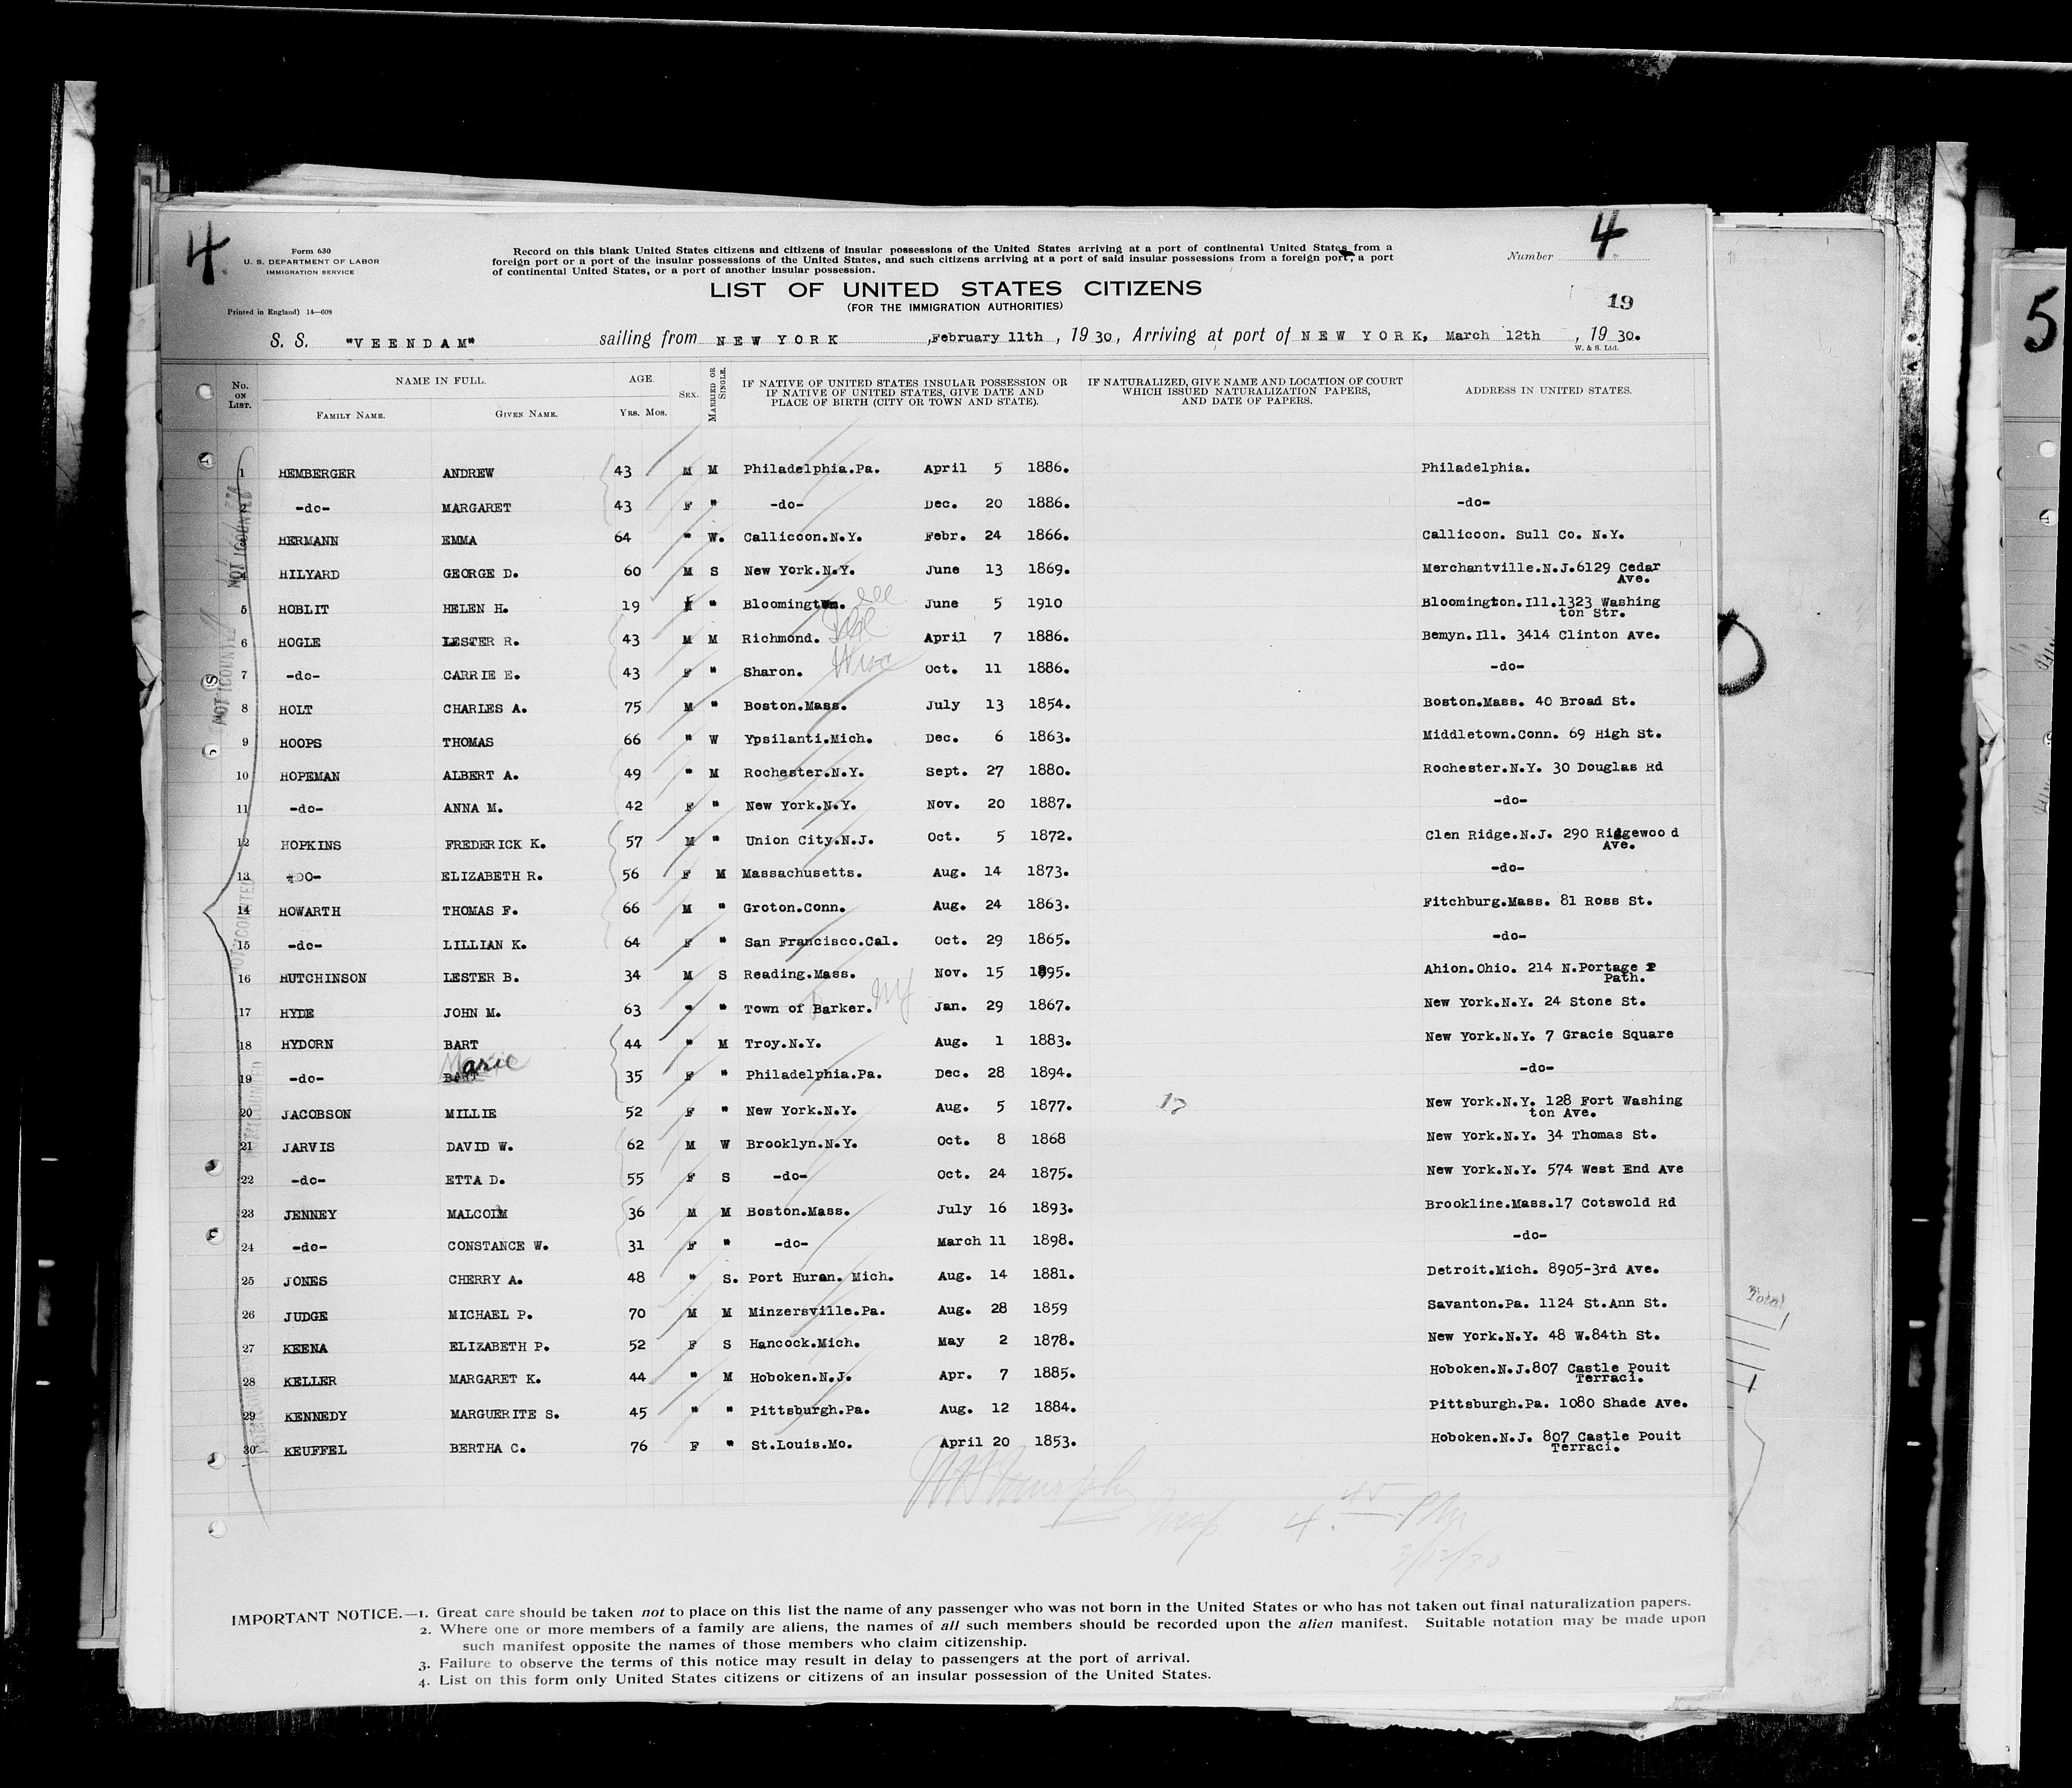 4
4
Form 630
U. S. DEPARTMENT OF LABOR
IMMIGRATION SERVICE
Printed in England) 14—608
Record on this blank United States citizens and citizens of insular possessions of the United States arriving at a port of continental United States from a
foreign port or a port of the insular possessions of the United States, and such citizens arriving at a port of said insular possessions from a foreign port, a port
of continental United States, or a port of another insular possession.
Number
LIST OF UNITED STATES CITIZENS
(FOR THE IMMIGRATION AUTHORITIES)
19
5
S. S. "VEENDAM" sailing from NEW YORK ,February 11th , 19 30, Arriving at port of NEW YORK, March 12th , 19 30.
W. & S. Ltd.
No. ON LIST. NAME IN FULL. FAMILY NAME. GIVEN NAME. AGE. YRS. MOS. SEX. MARRIED OR SINGLE. IF NATIVE OF UNITED STATES INSULAR POSSESSION OR IF NATIVE OF UNITED STATES, GIVE DATE AND PLACE OF BIRTH (CITY OR TOWN AND STATE). IF NATURALIZED, GIVE NAME AND LOCATION OF COURT WHICH ISSUED NATURALIZATION PAPERS, AND DATE OF PAPERS. ADDRESS IN UNITED STATES.
1 HEMBERGER ANDREW 43 M M Philadelphia.Pa. April 5 1886. Philadelphia.
-do- MARGARET 43 F " -do- Dec. 20 1886. -do-
HERMANN EMMA 64 " W. Callicoon.N.Y. Febr. 24 1866. Callicoon. Sull Co. N.Y.
HILYARD GEORGE D. 60 M S New York.N.Y. June 13 1869. Merchantville.N.J.6129 Cedar
Ave.
5 HOBLIT HELEN H. 19 " Ill June 5 1910 Bloomington.Ill.1323 Washing
ton Str.
6 HOGLE LESTER R. 43 M M Richmond. Ill April 7 1886. Bemyn.Ill. 3414 Clinton Ave.
7 -do- CARRIE E. 43 F " Sharon. Wisc Oct. 11 1886. -do-
8 HOLT CHARLES A. 75 M " Boston.Mass. July 13 1854. Boston.Mass. 40 Broad St.
9 HOOPS THOMAS 66 " W Ypsilanti.Mich. Dec. 6 1863. Middletown.Conn. 69 High St.
10 HOPEMAN ALBERT A. 49 " M Rochester.N.Y. Sept. 27 1880. Rochester.N.Y. 30 Douglas Rd
11 -do- ANNA M. 42 F " New York.N.Y. Nov. 20 1887. -do-
12 HOPKINS FREDERICK K. 57 M " Union City.N.J. Oct. 5 1872. Clen Ridge.N.J. 290 Ridgewoo d
Ave.
13 -DO- ELIZABETH R. 56 F M Massachusetts. Aug. 14 1873. -do-
14 HOWARTH THOMAS F. 66 M " Groton.Conn. Aug. 24 1863. Fitchburg.Mass. 81 Ross St.
15 -do- LILLIAN K. 64 F " San Francisco.Cal. Oct. 29 1865. -do-
16 HUTCHINSON LESTER B. 34 M S Reading.Mass. Nov. 15 1895. Ahion.Ohio. 214 N.Portage P
Path.
17 HYDE JOHN M. 63 " " Town of Barker. NY Jan. 29 1867. New York.N.Y. 24 Stone St.
18 HYDORN BART 44 " M Troy.N.Y. Aug. 1 1883. New York.N.Y. 7 Gracie Square
19 -do- BART Marie 35 F " Philadelphia.Pa. Dec. 28 1894. -do-
20 JACOBSON MILLIE 52 F " New York.N.Y. Aug. 5 1877. New York.N.Y. 128 Fort Washing
ton Ave.
21 JARVIS DAVID W. 62 M W Brooklyn.N.Y. Oct. 8 1868 New York.N.Y. 34 Thomas St.
22 -do- ETTA D. 55 F S -do- Oct. 24 1875. New York.N.Y. 574 West End Ave
23 JENNEY MALCOLM 36 M M Boston.Mass. July 16 1893. Brookline.Mass.17 Cotswold Rd
24 -do- CONSTANCE W. 31 F " -do- March 11 1898. -do-
25 JONES CHERRY A. 48 " S. Port Huran. Mich. Aug. 14 1881. Detroit.Mich. 8905-3rd Ave.
26 JUDGE MICHAEL P. 70 M M Minzersville.Pa. Aug. 28 1859 Savanton.Pa. 1124 St.Ann St.
27 KEENA ELIZABETH P. 52 F S Hancock.Mich. May 2 1878. New York.N.Y. 48 W.84th St.
28 KELLER MARGARET K. 44 " M Hoboken.N.J. Apr. 7 1885. Hoboken.N.J.807 Castle Pouit
Terraci.
29 KENNEDY MARGUERITE S. 45 " " Pittsburgh.Pa. Aug. 12 1884. Pittsburgh.Pa. 1080 Shade Ave.
30 KEUFFEL BERTHA C. 76 F " St.Louis.Mo. April 20 1853. Hoboken.N.J. 807 Castle Pouit
Terraci.
Total
4.45 PM
3/12/30
IMPORTANT NOTICE.—1. Great care should be taken not to place on this list the name of any passenger who was not born in the United States or who has not taken out final naturalization papers.
2. Where one or more members of a family are aliens, the names of all such members should be recorded upon the alien manifest. Suitable notation may be made upon
such manifest opposite the names of those members who claim citizenship.
3. Failure to observe the terms of this notice may result in delay to passengers at the port of arrival.
4. List on this form only United States citizens or citizens of an insular possession of the United States.